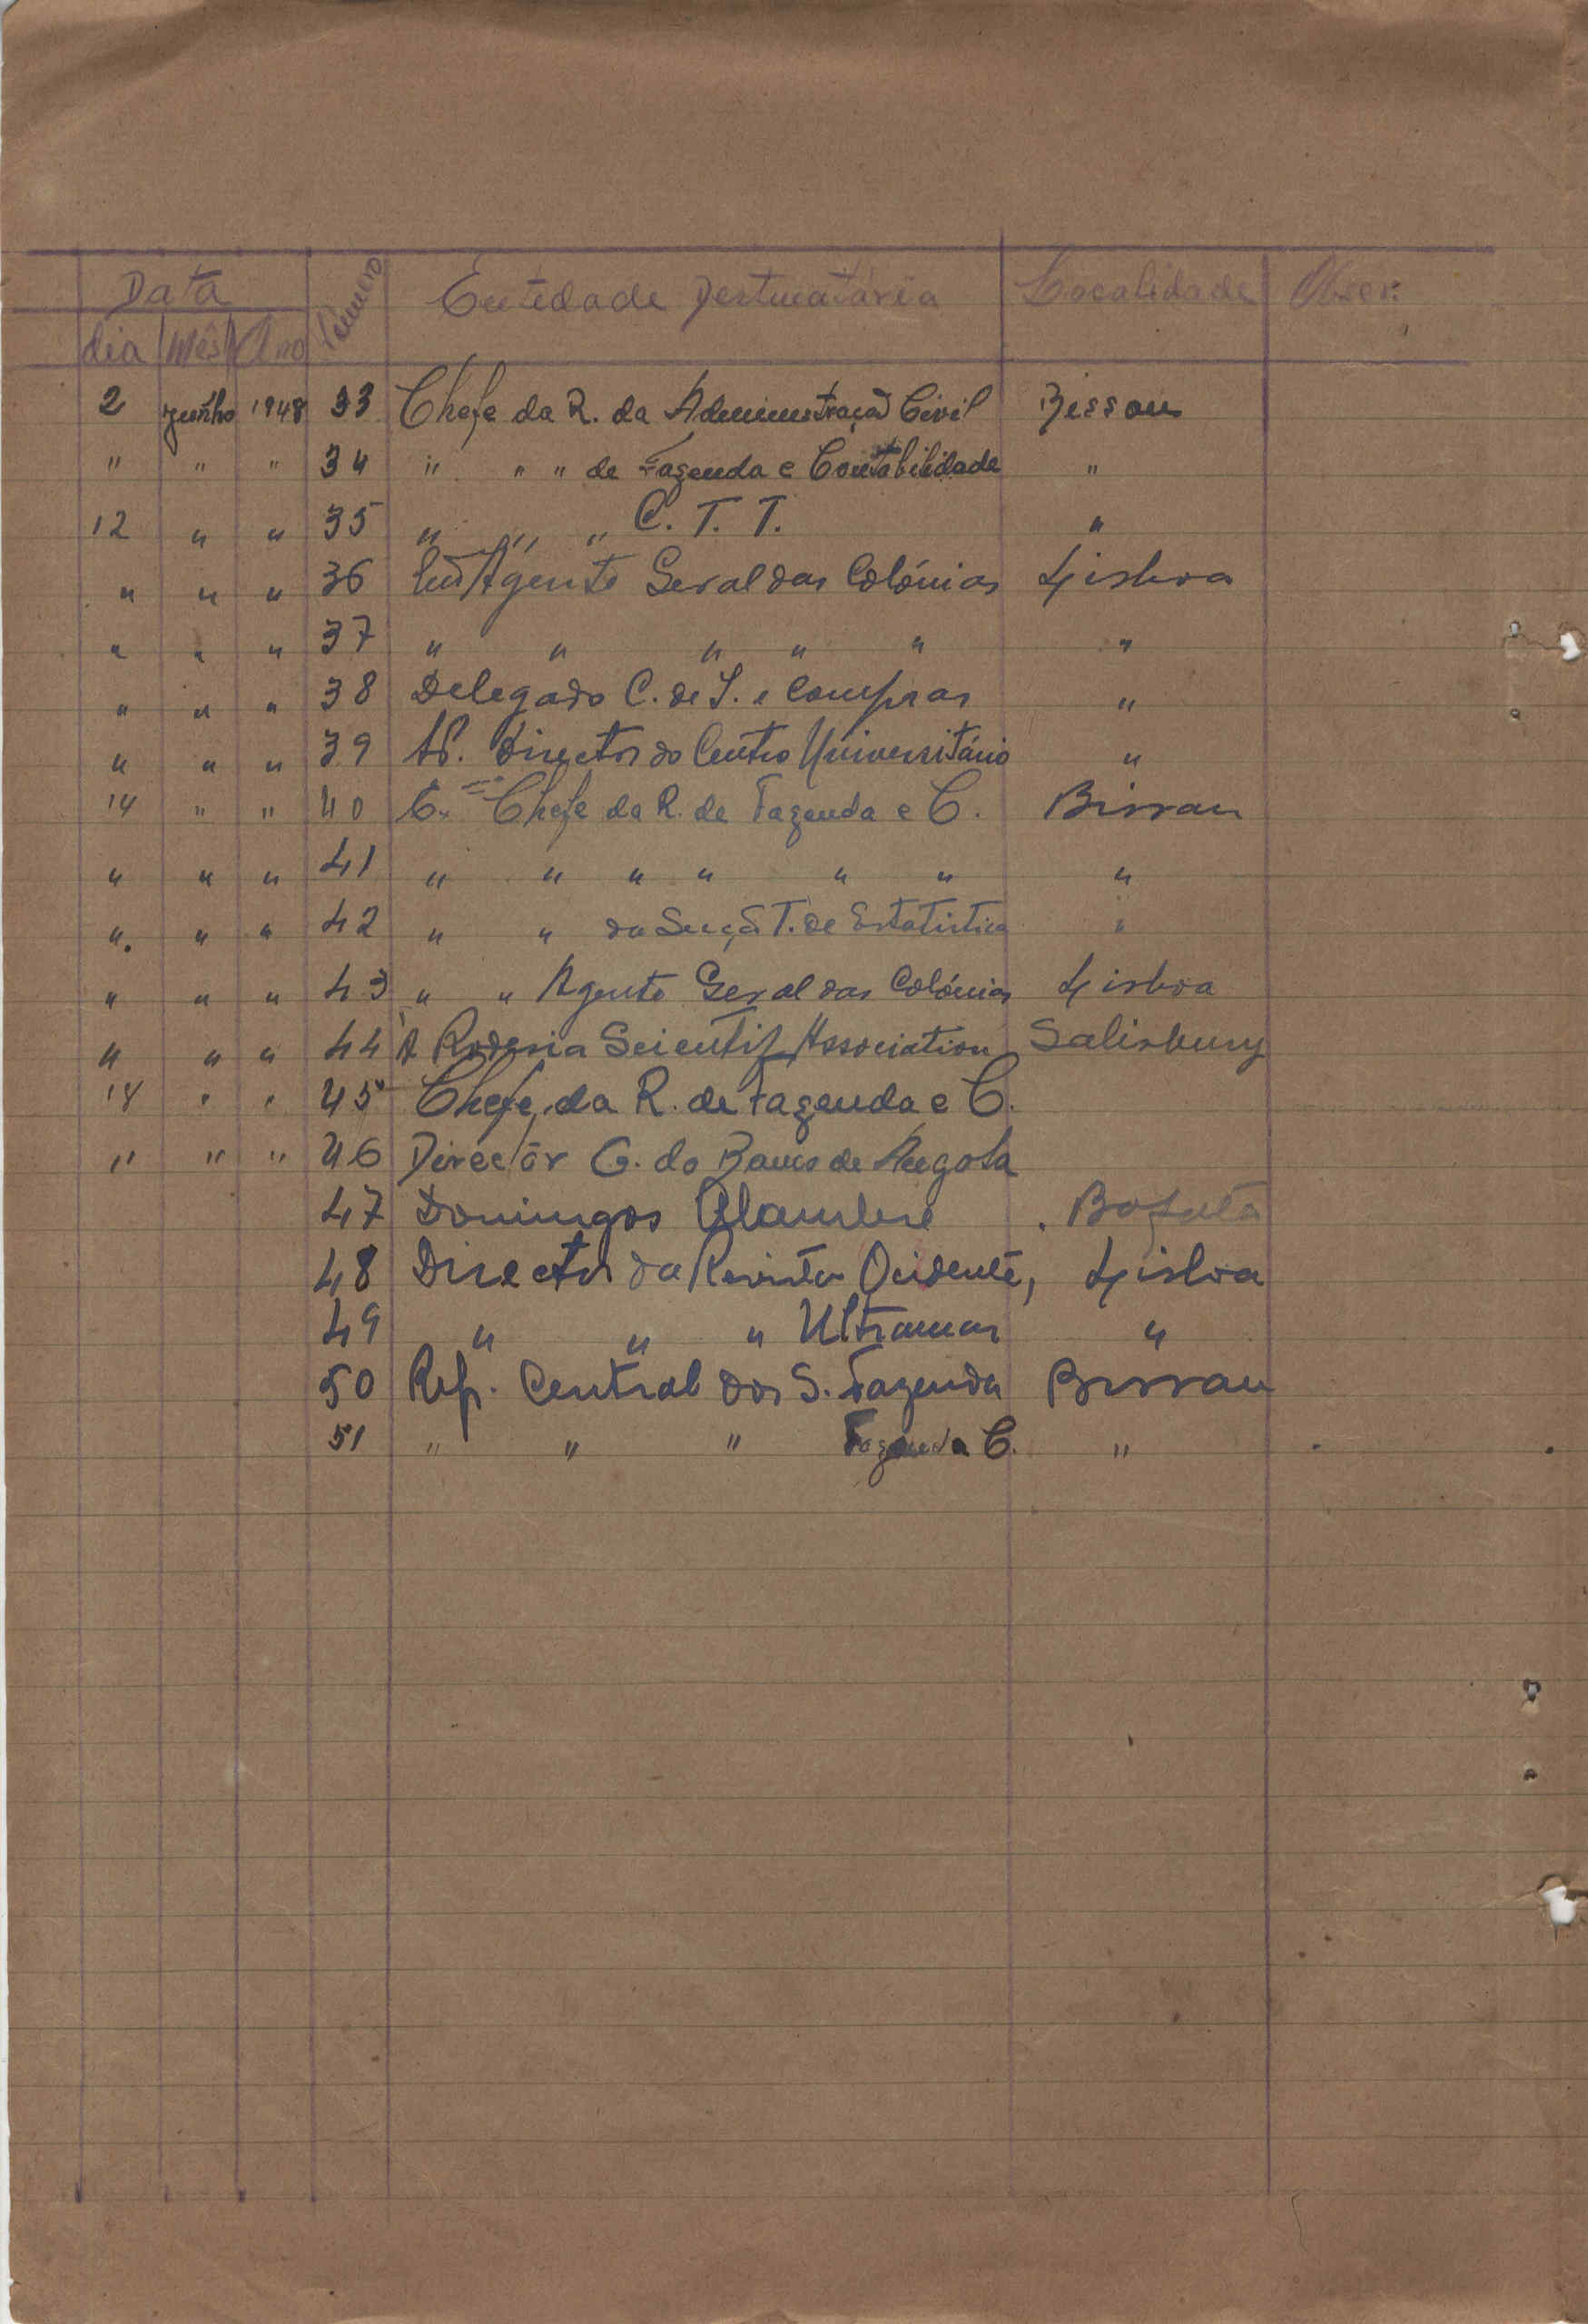 Data Número Entidade Destinatária Localidade Obser:
dia Mês Ano
2 Junho 1948 33 Chefe da R. da Administração Civil Bissau
" " " 34 " " " de Fazenda e Contabilidade "
12 " " 35 " " " C. T. T. "
" " " 36 Agente Geral das Colónias Lisboa
" " " 37 " " " " " "
" " " 38 Delegado C. de S. e Compras "
" " " 39 Director do Centro Universitário "
14 " " 40 Chefe da R. de Fazenda e C. Bissau
" " " 41 " " " " " " "
" " " 42 " " da Secção T. de Estatistica "
" " " 43 " " Agente Geral das Colónias Lisboa
" " " 44 À Rodesia Scientif Association Salisbury
18 " " 45 Chefe da R. de Fazenda e C.
" " " 46 Directôr G. do Banco de Angola
47 Domingos Bafatá
48 Director da Revista Ocidente, Lisboa
49 " " " Ultramar "
50 Rep. Central dos S. Fazenda Bissau
51 " " " Fazenda C. "